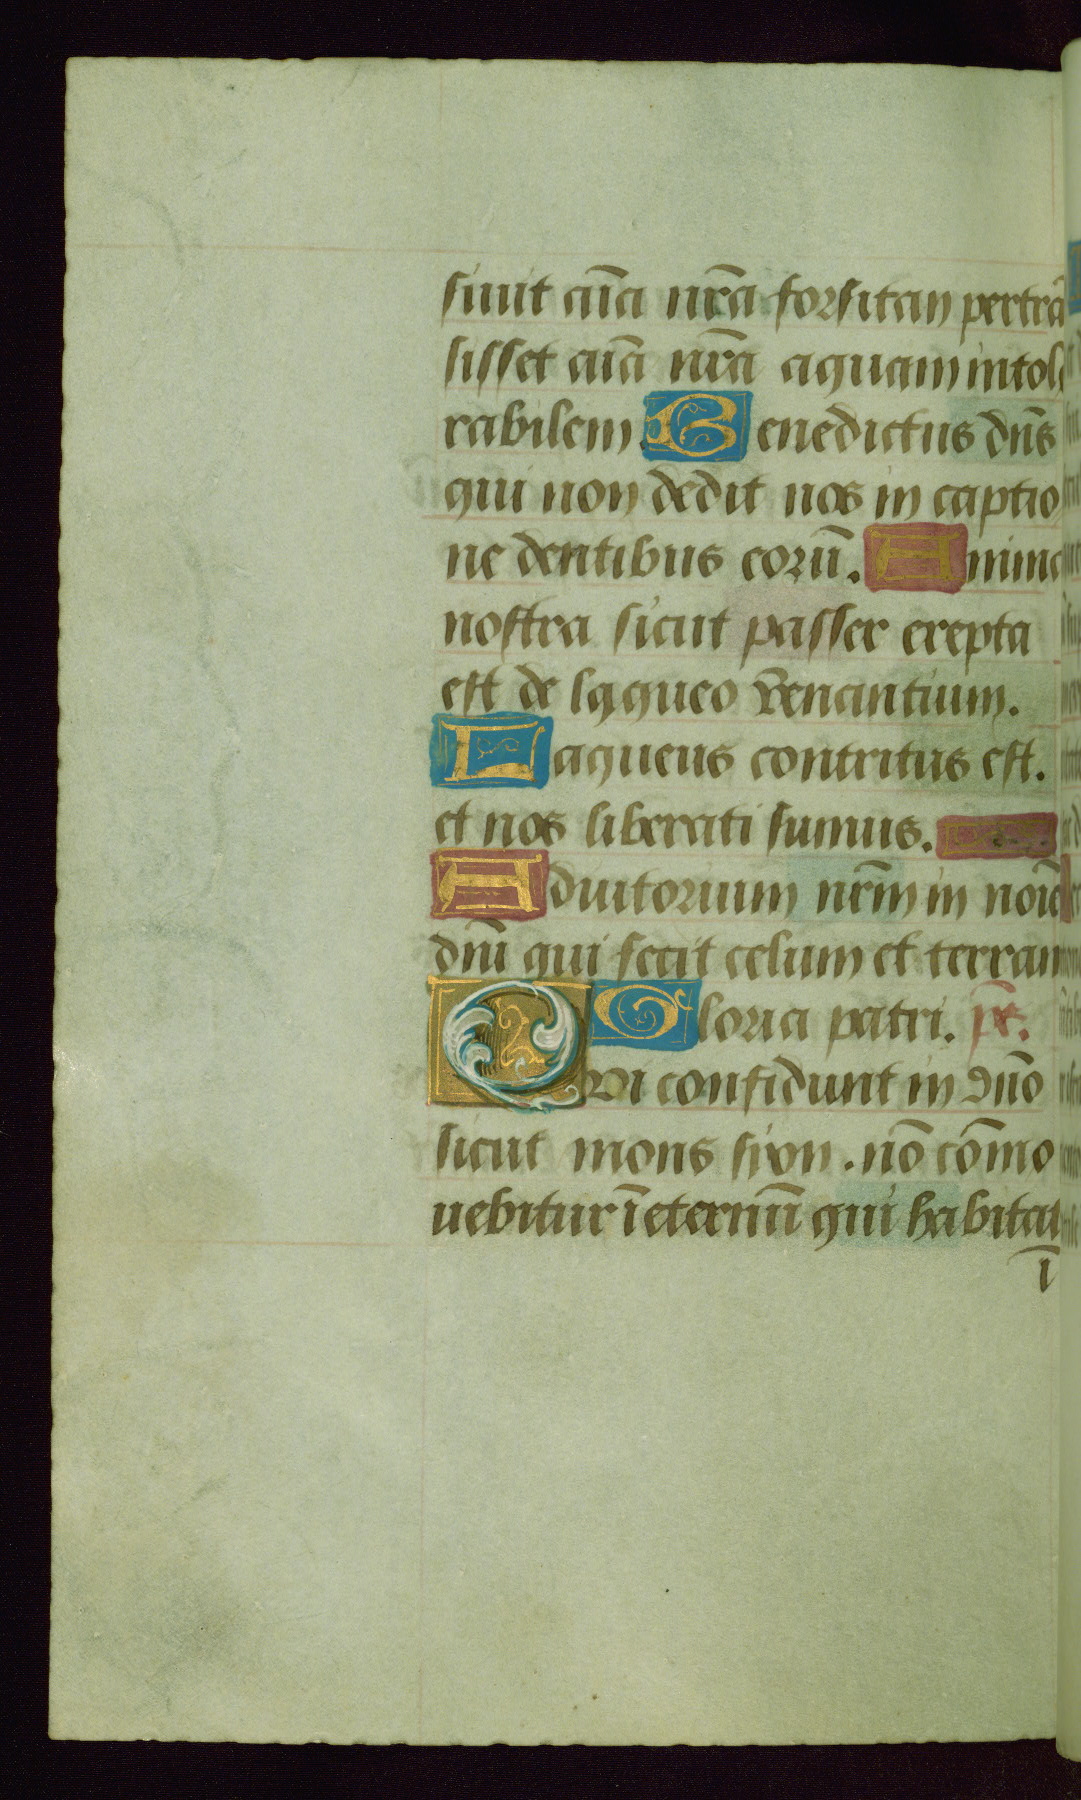 siuit aīa nr̄a forsitan pertrā
sisset aīa nr̄a aquam intole
rabilem. Benedictus dn̄s
qui non dedit nos in captio
ne dentibus eorū. Anima
nostra sicut passer erepta
est de laqueo venantium.
Laqueus contritus est.
et nos liberati sumus.
Adiutorium nr̄m in noīe
dn̄i qui fecit celum et terram
Gloria patri. ps̄.
Qui confidunt in dn̄o
sicut mons sion. nō cōmo
uebitur ī eternū qui habitat
ī